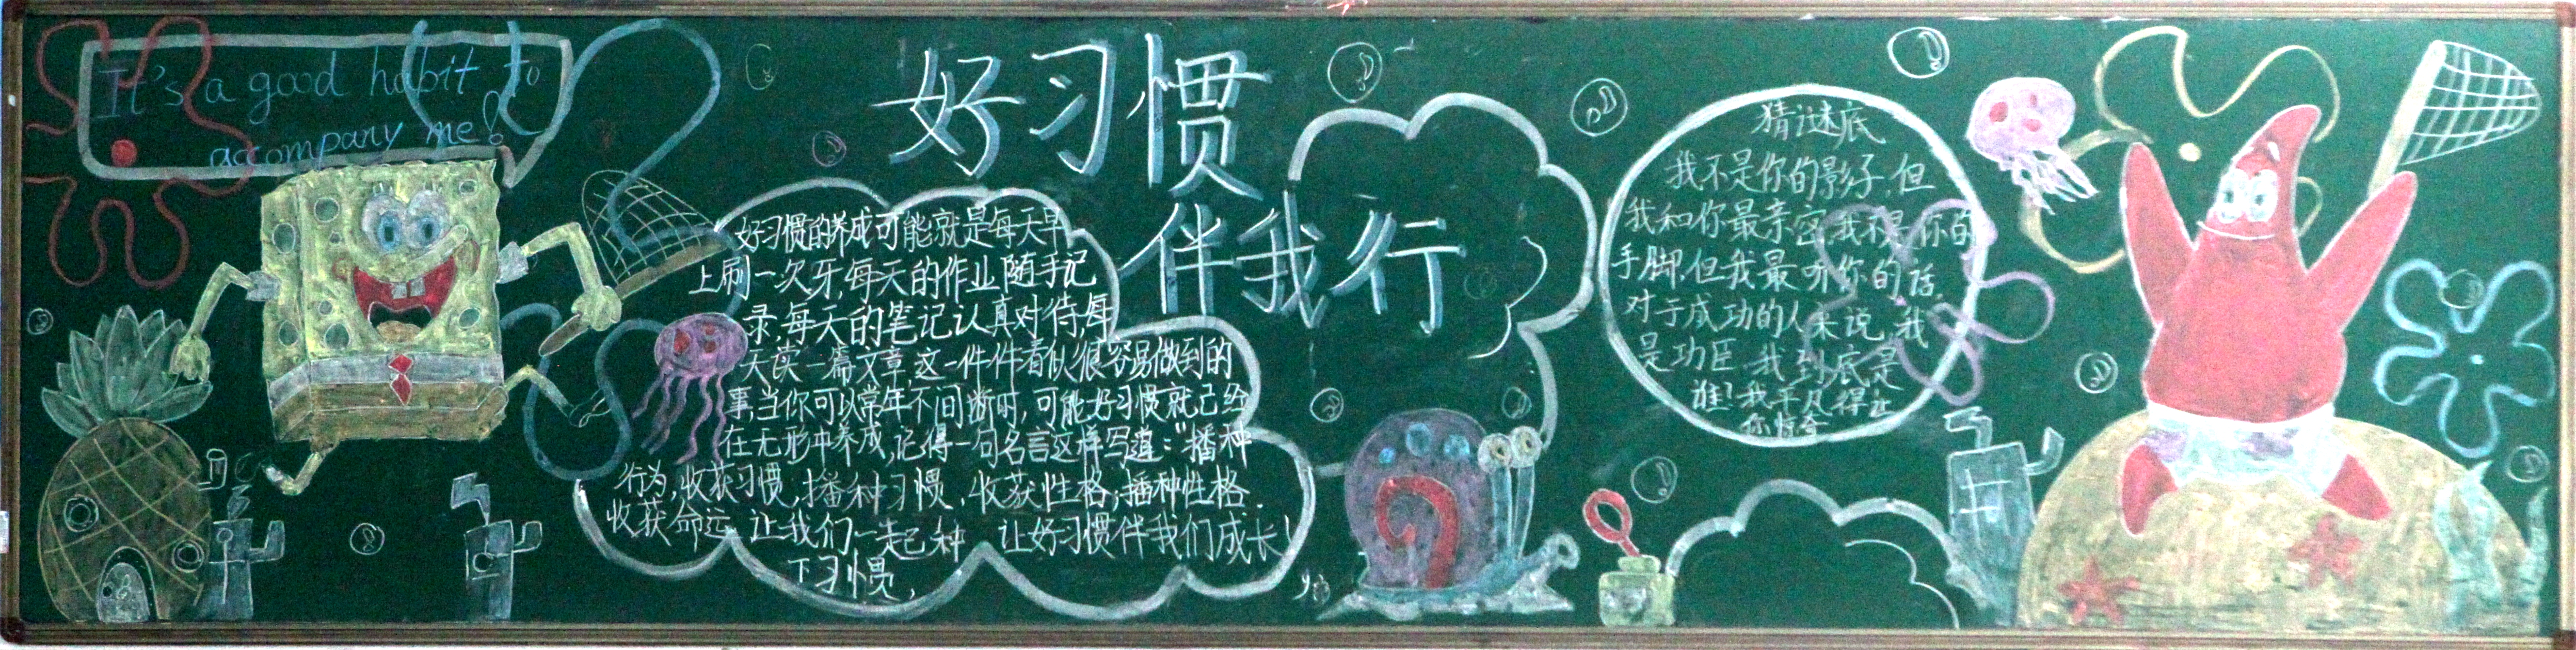 It's a good habit to
accompany me!
好习惯
伴我行
好习惯的养成可能就是每天早
上刷一次牙,每天的作业随手记
录,每天的笔记认真对待,每
天读一篇文章这一件件看似很容易做到的
事,当你可以常年不间断时,可能好习惯就己经
在无形中养成,记得一句名言这样写道:“播种
行为,收获习惯,播种习惯,收获性格,播种性格.
收获命运 让我们一起种 让好习惯伴我们成长!
下习惯,
猜谜底
我不是你的影子,但
我和你最亲密,我不是你的
手脚,但我最听你的话,
对于成功的人来说,我
是功臣,我到底是
谁!我平凡得让
你惊奇